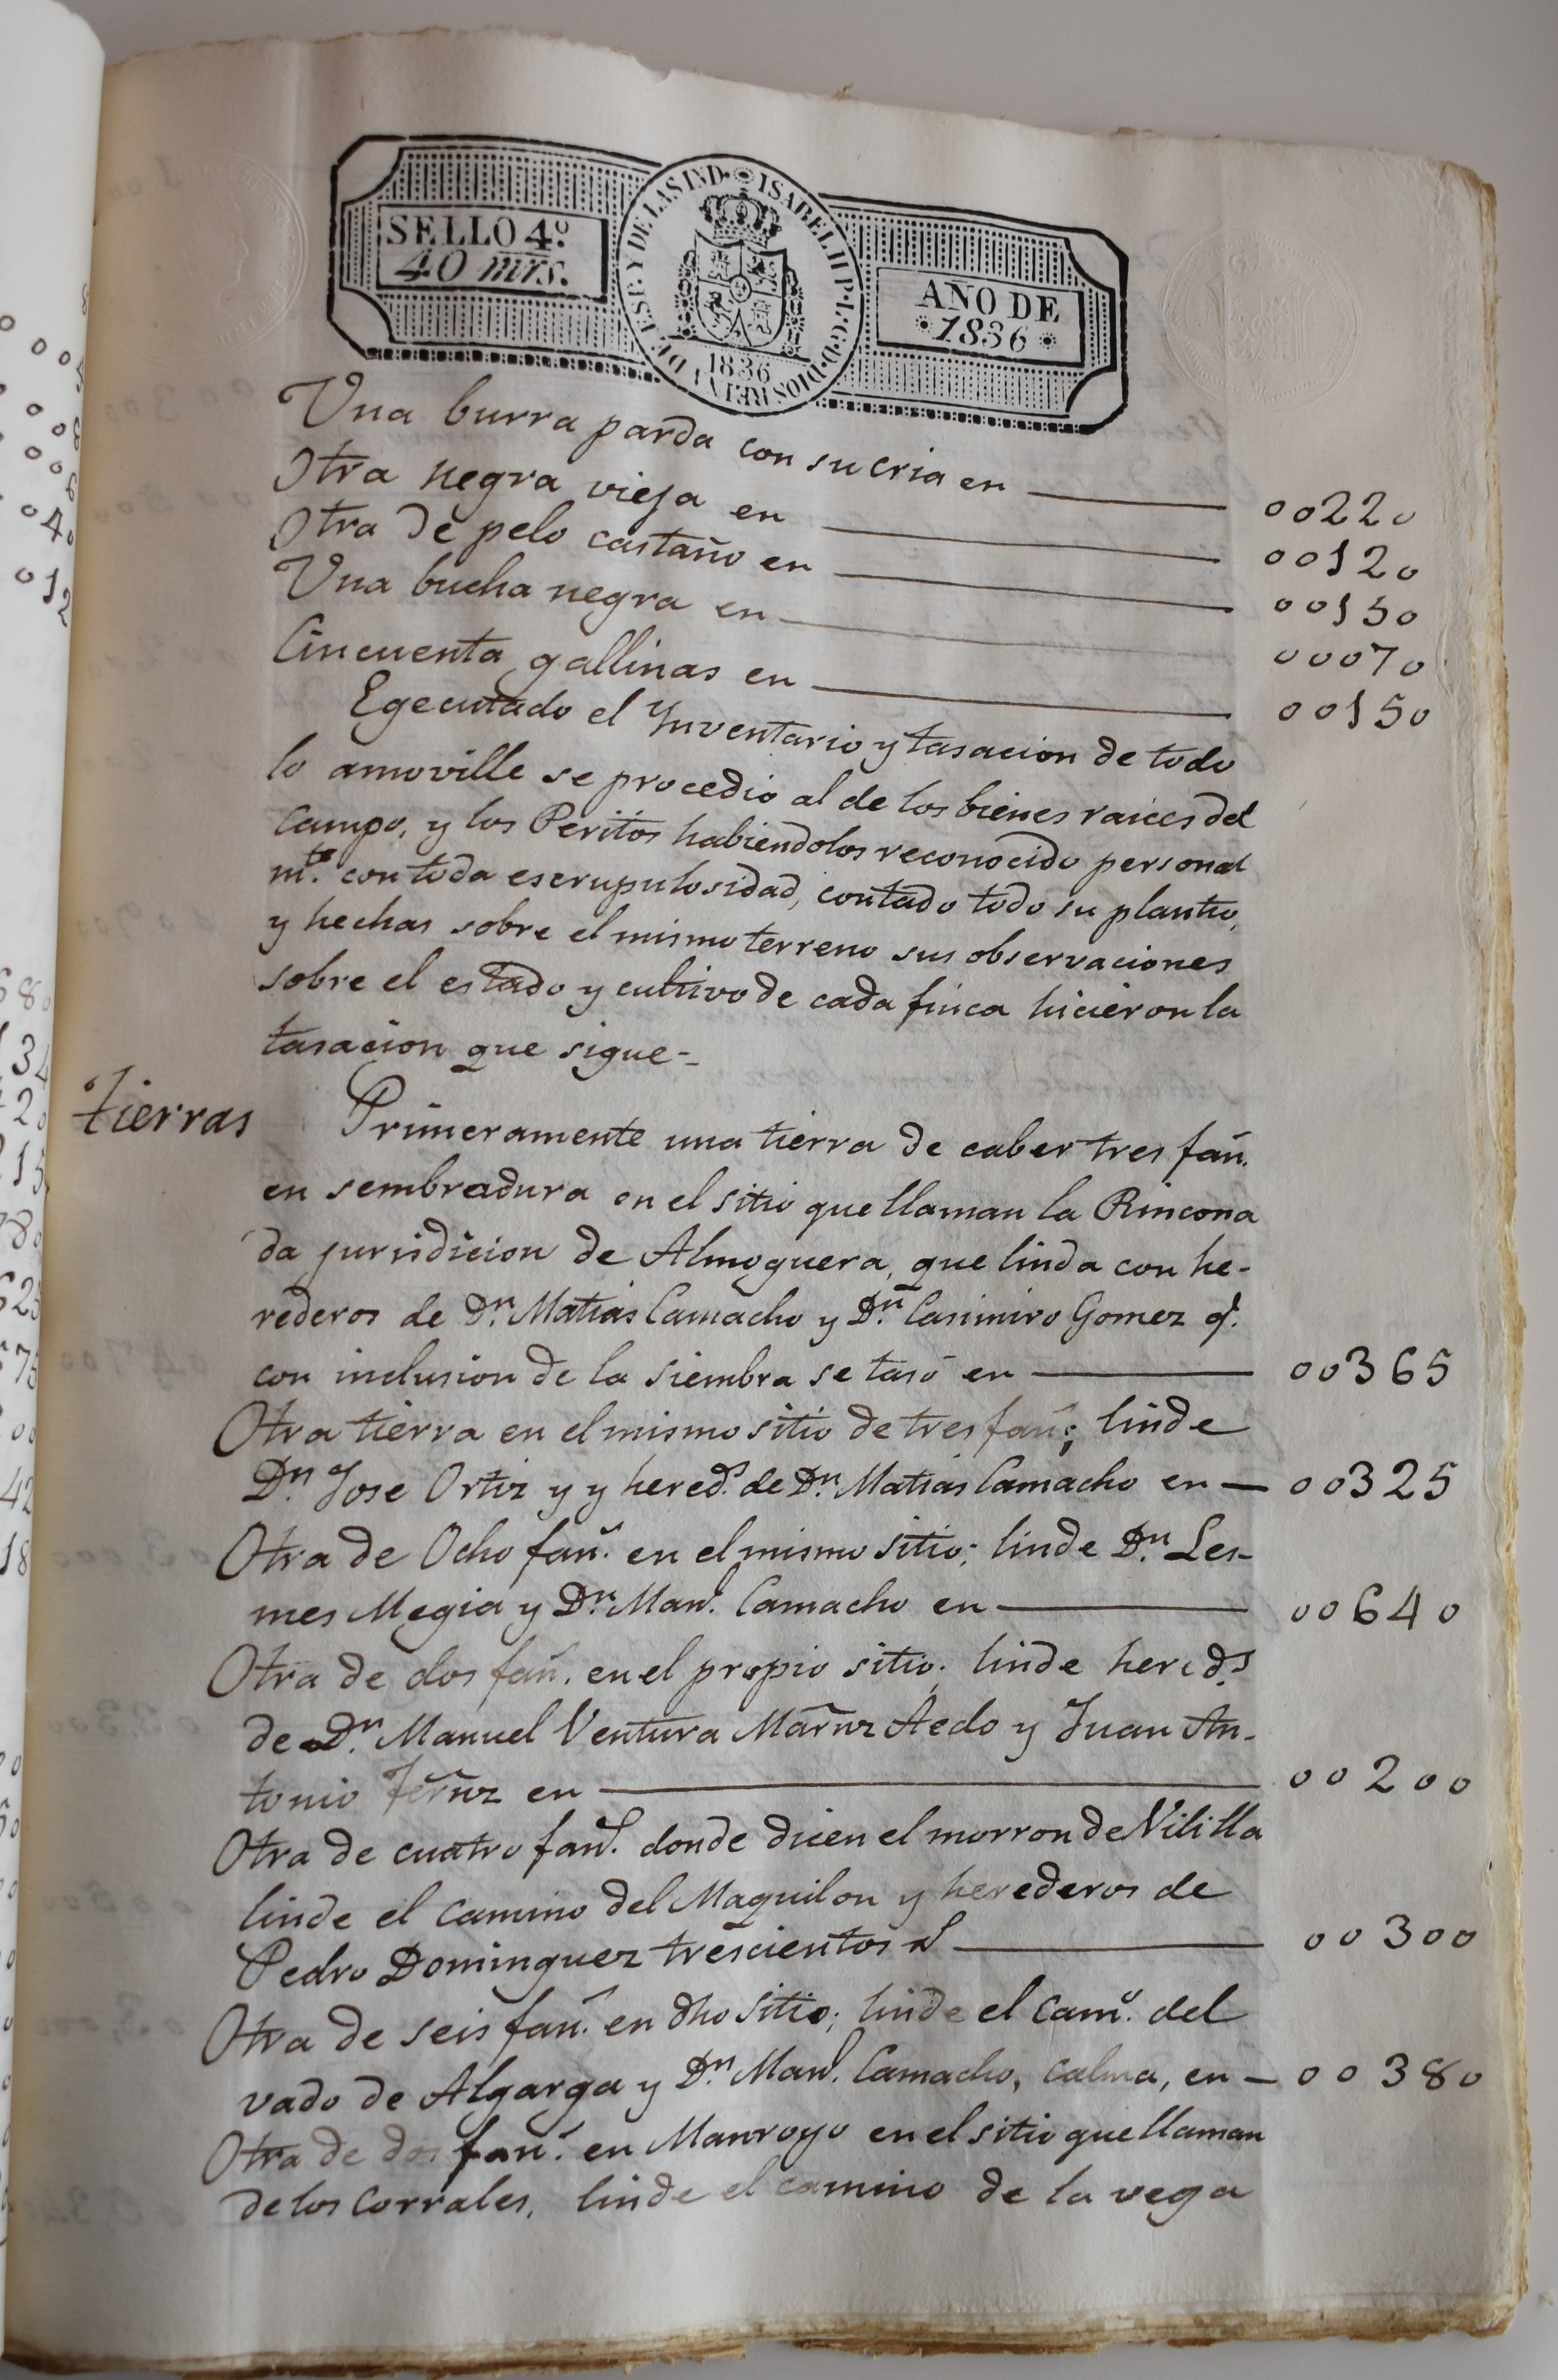 SELLO 4º
40 mrs.
ISABEL II P. L. G. D. DIOS REINA DE ESP. Y DE LAS IND.
1836
AÑO DE
1836
Una burra parda con su cria en — 00220
Otra negra vieja en — 00120
Otra de pelo castaño en — 00150
Una bucha negra en — 00070
Cincuenta gallinas en — 00150
Egecutado el Ynventario y tasacion de todo
lo amoville se procedio al de los bienes raices del
Campo, y los Peritos habiendolos reconocido personal
mte. con toda escrupulosidad, contado todo su plantio,
y hechas sobre el mismo terreno sus observaciones
sobre el estado y cultivo de cada finca hicieron la
tasacion que sigue-
tierras
Primeramente una tierra de caber tres fañ.
en sembradura en el sitio que llaman la Rincona
da jurisdicion de Almoguera, que linda con he-
rederos de Dn. Matias Camacho y Dn. Casimiro Gomez q.
con inclusion de la siembra se tasó en — 00365
Otra tierra en el mismo sitio de tres fañ.; linde
Dn. Jose Ortiz y y hereds. de Dn. Matias Camacho en — 00325
Otra de Ocho fañ. en el mismo sitio; linde Dn. Les-
mes Megia y Dn. Manl. Camacho en — 00640
Otra de dos fañ. en el propio sitio; linde hereds.
de Dn. Manuel Ventura Marñz Aedo y Juan An-
tonio Ferñz en — 00200
Otra de cuatro fañ. donde dicen el morron de Vililla
linde el camino del Maquilon y herederos de
Pedro Dominguez trescientos rs — 00300
Otra de seis fañ. en dho sitio; linde el camo. del
vado de Algarga y Dn. Manl. Camacho, calma, en — 00380
Otra de dos fañ. en Manroyo en el sitio que llaman
de los Corrales, linde el camino de la vega